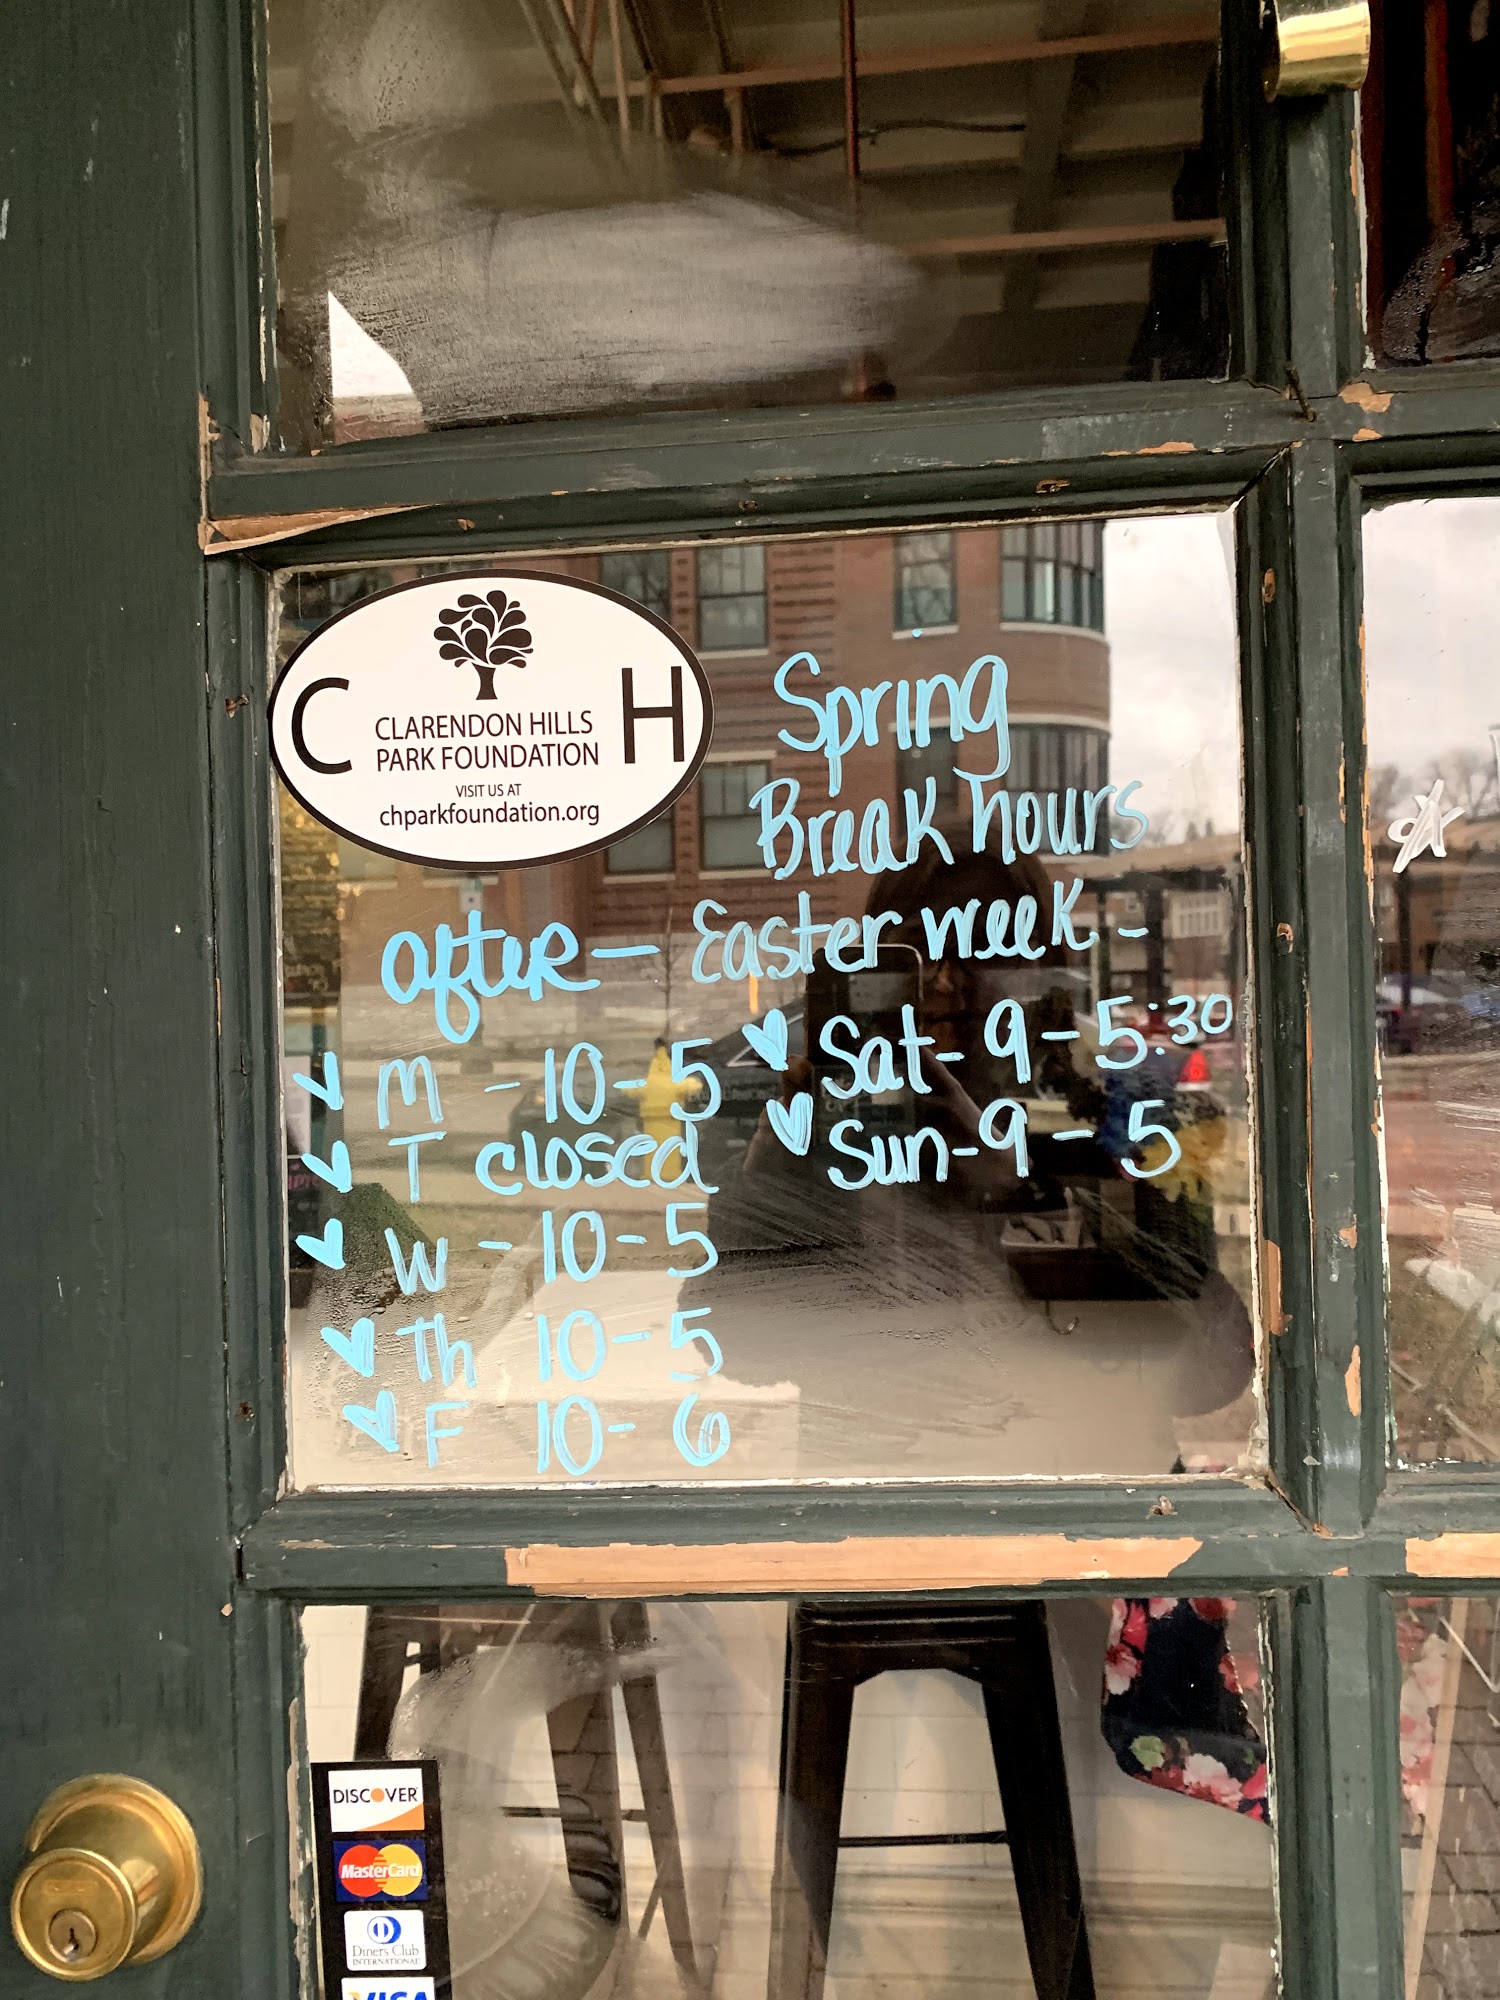 C H
CLARENDON HILLS
PARK FOUNDATION
VISIT US AT
chparkfoundation.org
Spring
Break hours
after - Easter week -
M - 10 - 5
T closed
W - 10 - 5
Th 10 - 5
F 10 - 6
Sat - 9 - 5:30
Sun - 9 - 5
DISCOVER
MasterCard
Diners Club
INTERNATIONAL
VISA